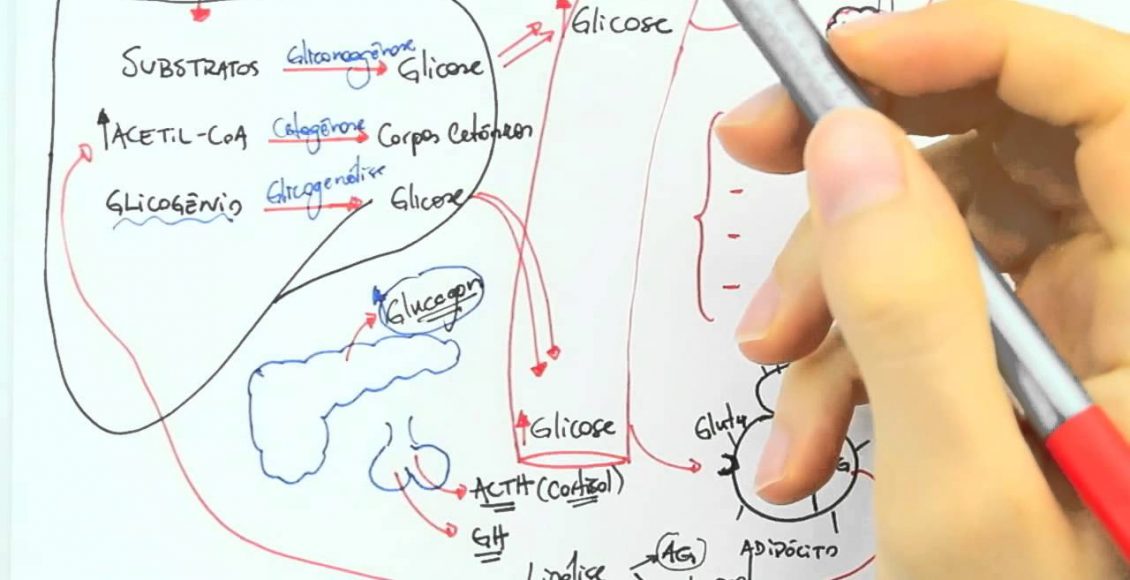 Glicose
SUBSTRATOS Gliconeogênese Glicose
ACETIL-CoA Cetogênese Corpos Cetônicos
GLICOGÊNIO Glicogenólise Glicose
Glucagon
Glicose
Glut4
ACTH (Cortisol)
GH
Lipólise AG ADIPÓCITO